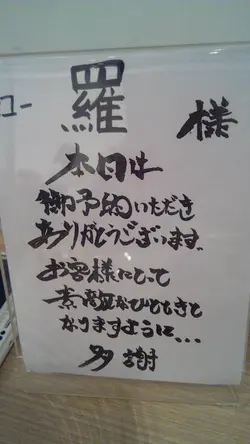 ロー
羅 様
本日は
御予約いただき
ありがとうございます。
お客様にとって
素敵なひとときと
なりますように...
多謝